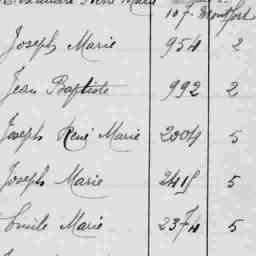 Marie
107 Montfort
Joseph Marie 954 2
Jean Baptiste 992 2
Joseph René Marie 2004 5
Joseph Marie 2415 5
Emile Marie 2374 5